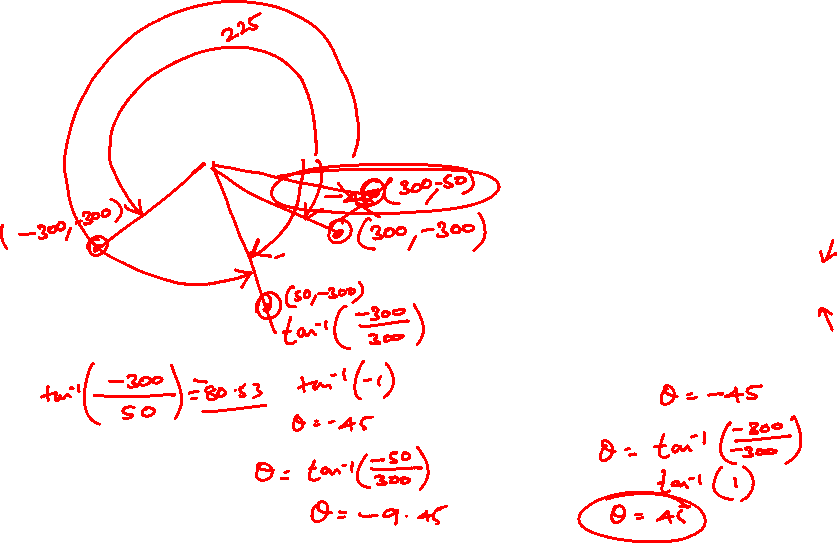 225
(300,-50)
(-300,-300)
(300,-300)
(50,-300)
tan⁻¹(-300/300)
tan⁻¹(-300/50) = -80.53
tan⁻¹(-1)
θ = -45
θ = tan⁻¹(-50/300)
θ = -9.45
θ = -45
θ = tan⁻¹(-300/-300)
tan⁻¹(1)
θ = 45